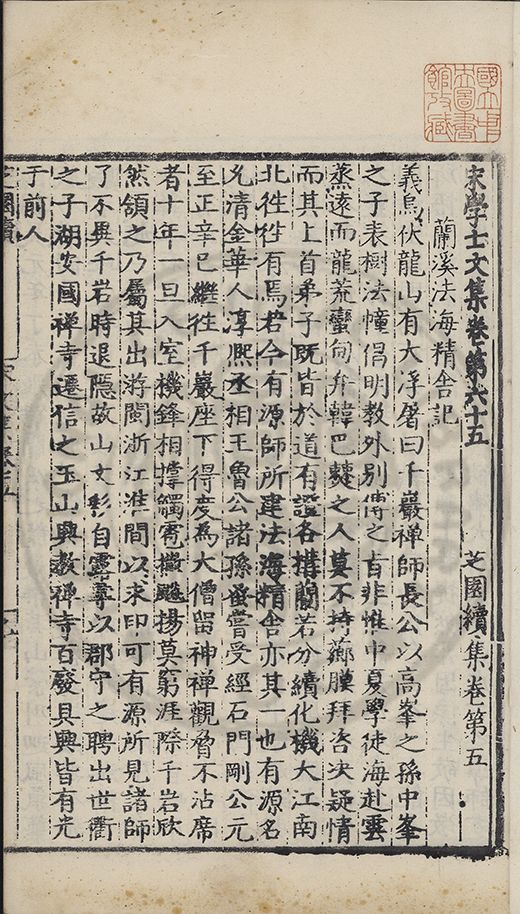 宋學士文集卷第六十五 芝園續集卷第五
蘭溪法海精舍記
義烏伏龍山有大浮屠曰千巖禪師長公以高峯之孫中峯
之子表樹法幢倡明教外別傳之旨非惟中夏學徒海赴雲
蒸遠而龍荒蠻甸弁韓巴僰之人莫不持薌膜拜咨决疑情
而其上首弟子既皆於道有證各搆蘭若分續化機大江南
北徃徃有焉若今有源師所建法海精舍亦其一也有源名
允清金華人淳熈丞相王魯公諸孫蚤嘗受經石門剛公元
至正辛巳繼徃千巖座下得度爲大僧留神禪觀脅不沾席
者十年一旦入室機鋒相撐觸雷撇飈揚莫窮涯際千岩欣
然頷之乃屬其出游閩浙江淮間以求印可有源所見諸師
了不異千岩時退隱故山文彩自露尋以郡守之聘出世衢
之子湖安國禪寺遷信之玉山興教禪寺百廢具興皆有光
于前人
國立中央圖書館收藏